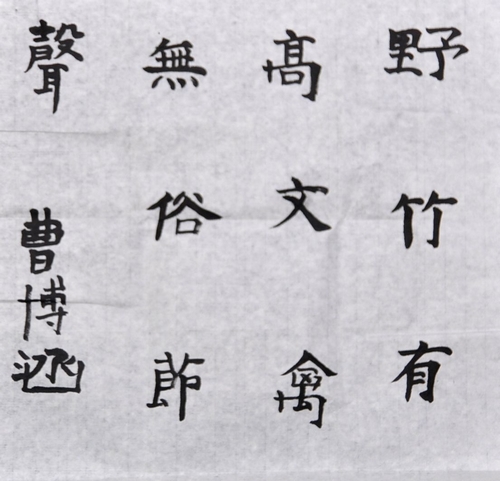 野竹有
髙文禽
無俗節
聲
曹博涵